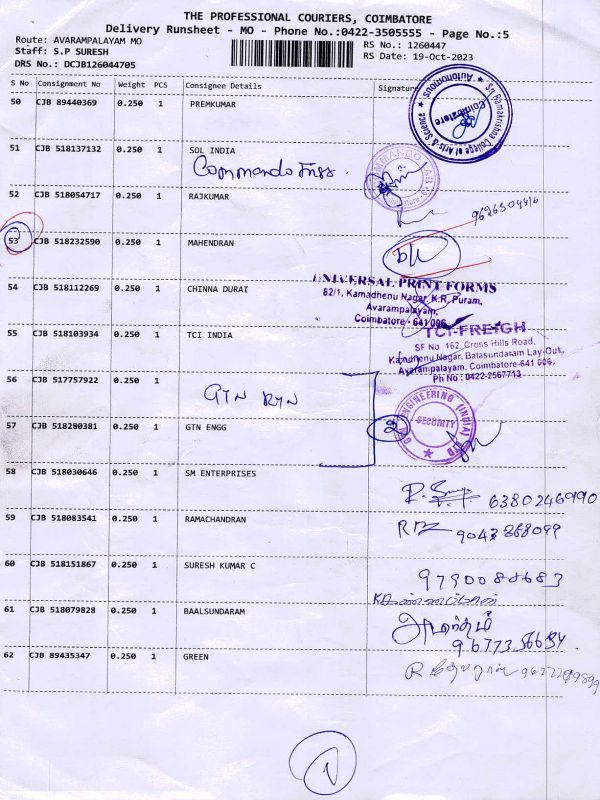 THE PROFESSIONAL COURIERS, COIMBATORE
Delivery Runsheet - MO - Phone No.:0422-3505555 - Page No.:5
Route: AVARAMPALAYAM MO
RS No.: 1260447
Staff: S.P SURESH
RS Date: 19-Oct-2023
DRS No.: DCJB126044705
S No Consignment No Weight PCS Consignee Details Signature
50 CJB 89440369 0.250 1 PREMKUMAR
Sri Ramakrishna College of Arts & Science
Autonomous
Coimbatore
51 CJB 518137132 0.250 1 SOL INDIA
Commando Engg.
Coimbatore
52 CJB 518054717 0.250 1 RAJKUMAR
53 CJB 518232590 0.250 1 MAHENDRAN
54 CJB 518112269 0.250 1 CHINNA DURAI
UNIVERSAL PRINT FORMS
82/1, Kamadhenu Nagar, K.R. Puram,
Avarampalayam,
Coimbatore - 641 006
55 CJB 518103934 0.250 1 TCI INDIA
TCI-FREIGH
SF No. 162, Cross Hills Road,
Kamdhenu Nagar, Balasundaram Lay-Out,
Avarampalayam, Coimbatore-641 006.
Ph No : 0422-2567713
56 CJB 517757922 0.250 1
GTN
57 CJB 518280381 0.250 1 GTN ENGG
ENGINEERING (INDIA) LTD
SECURITY
58 CJB 518030646 0.250 1 SM ENTERPRISES
6380246990
59 CJB 518083541 0.250 1 RAMACHANDRAN
9043868099
60 CJB 518151867 0.250 1 SURESH KUMAR C
9790088683
61 CJB 518079828 0.250 1 BAALSUNDARAM
62 CJB 89435347 0.250 1 GREEN
1